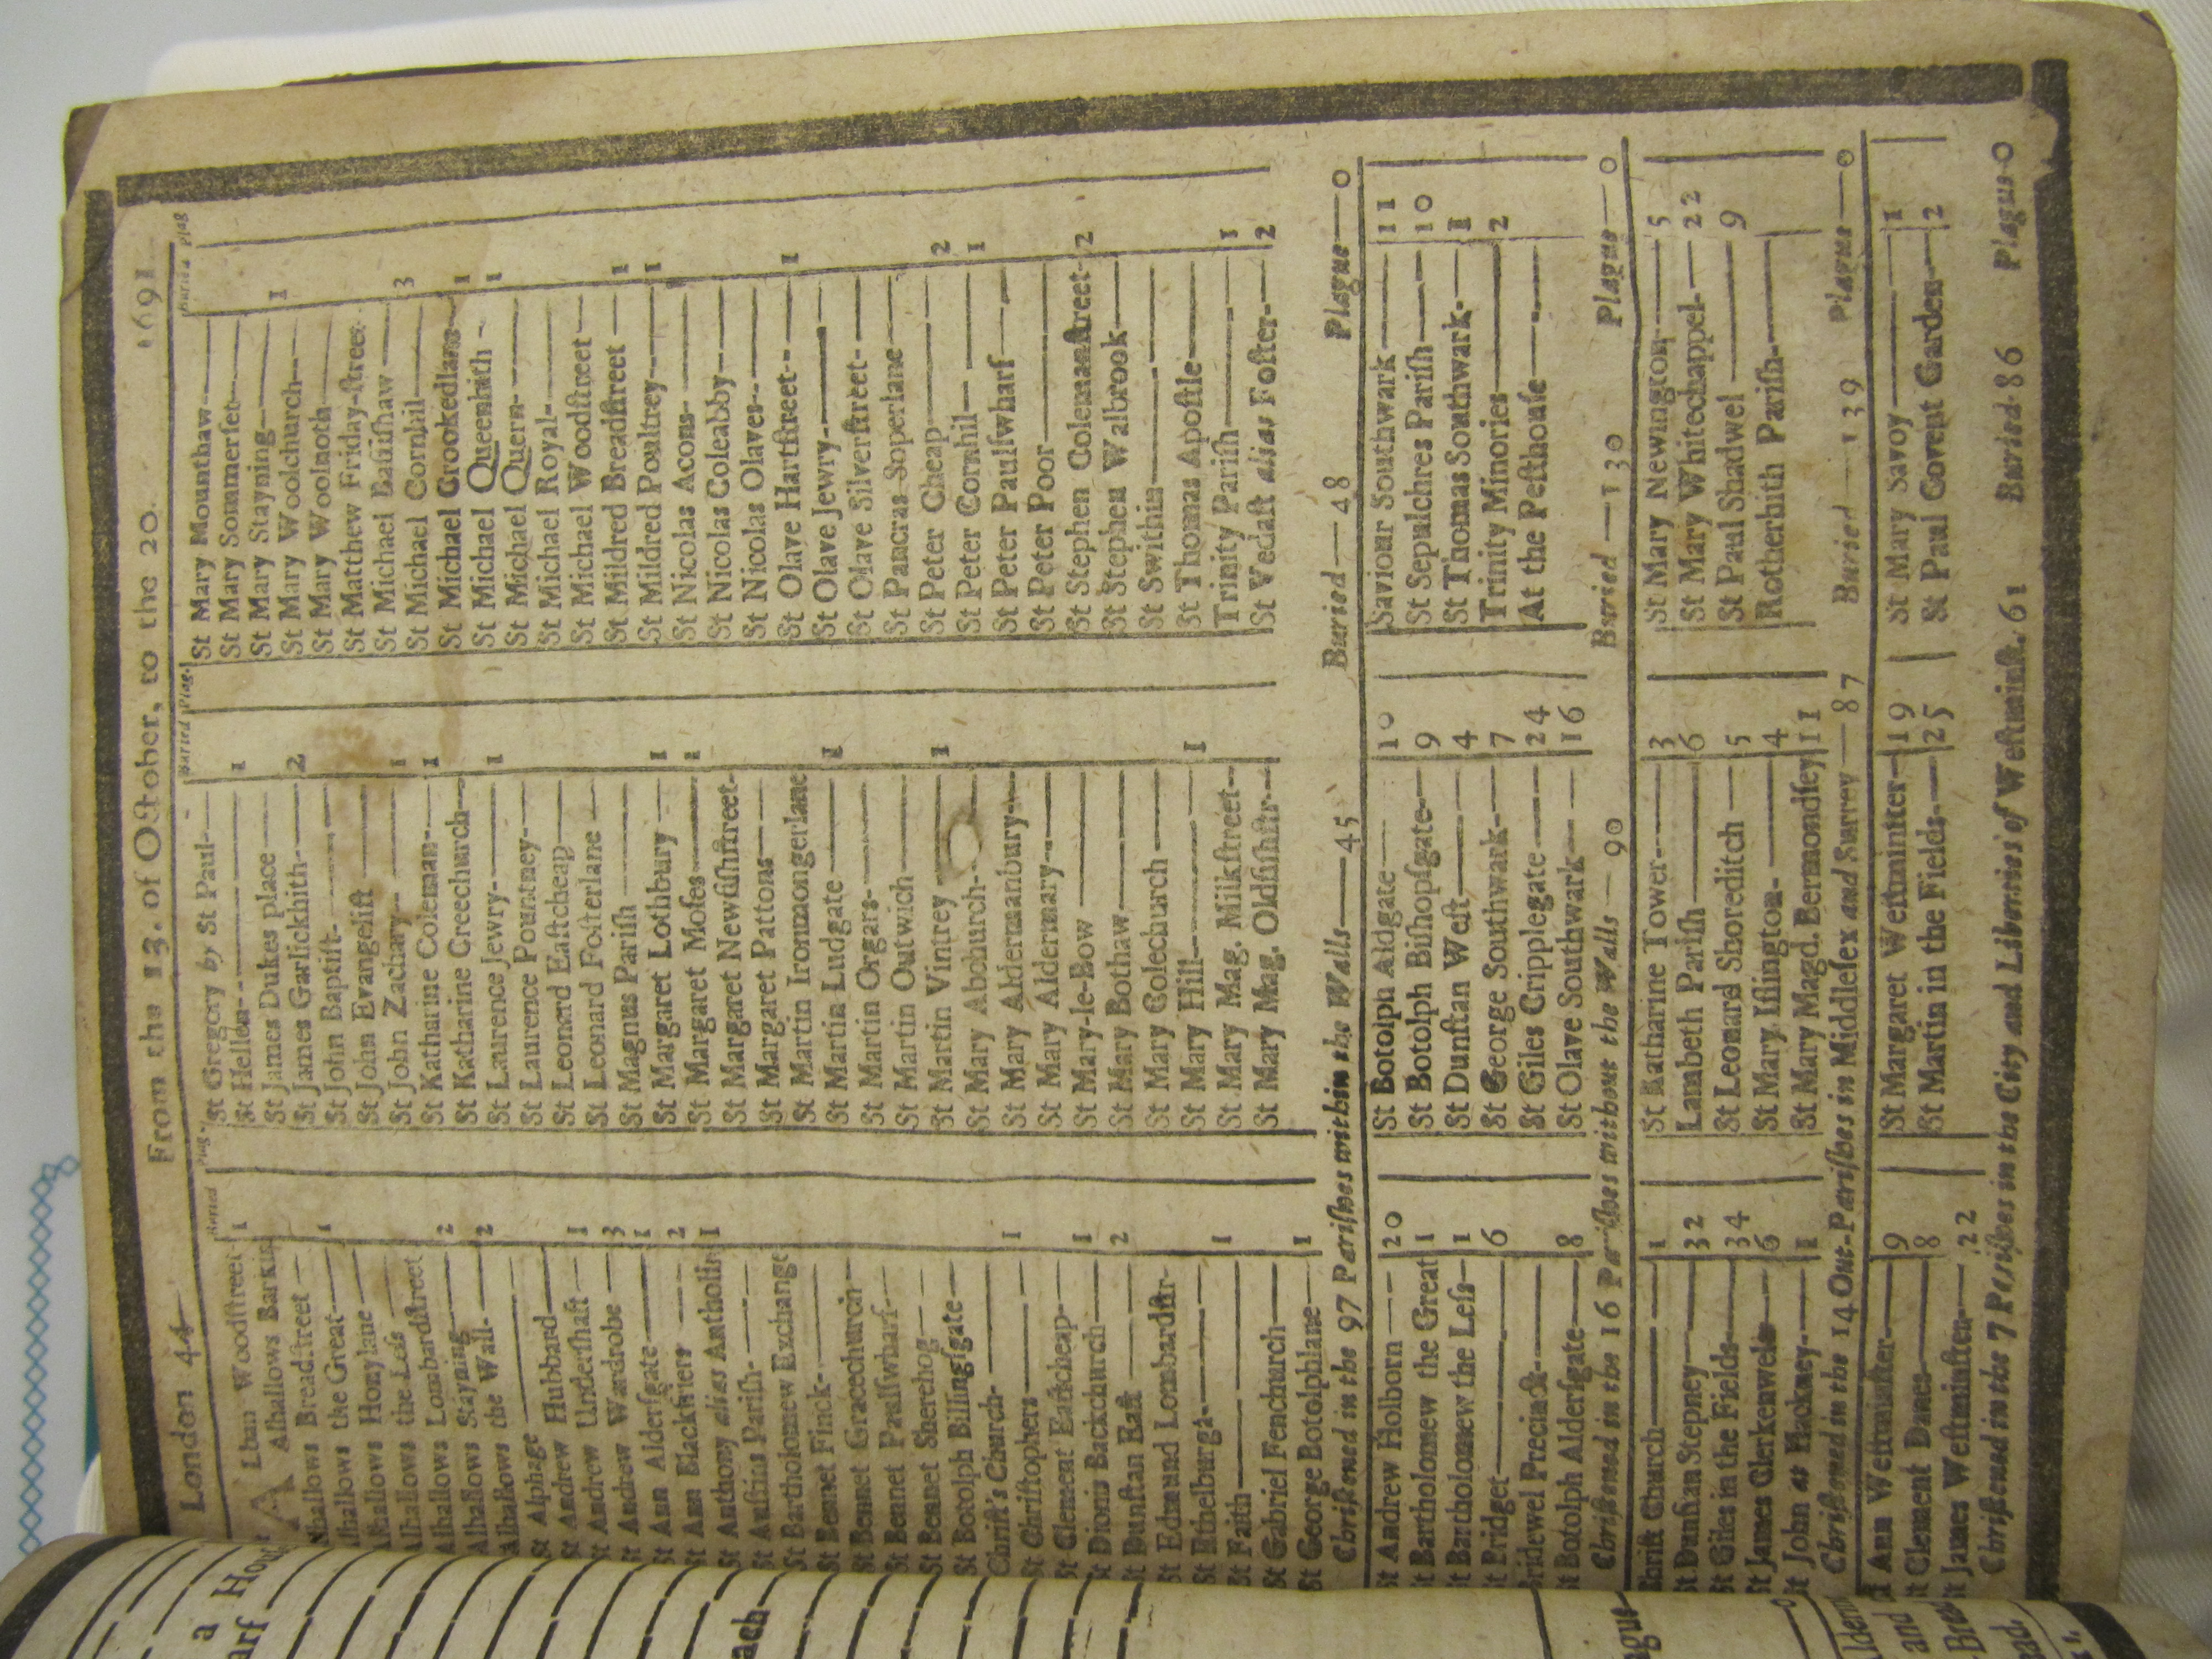 London 44 From the 13. of October, to the 20. 1691
Buried Plag.
ALban Woodſtreet 1
Alhallows Barkin
Alhallows Breadſtreet —
Alhallows the Great— 1
Alhallows Honylane —
Alhallows the Leſs —
Alhallows Lombardſtreet
Alhallows Stayning— 2
Alhallows the Wall- — 2
St Alphage —
St Andrew Hubbard—
St Andrew Underſhaft — 1
St Andrew Wardrobe — 3
St Ann Alderſgate — 1
St Ann Blackfriers — 2
St Anthony alias Antholin 1
St Auſtins Pariſh- —
St Bartholomew Exchange
St Bennet Finck- —
St Bennet Gracechurch—
St Bennet Paulſwharf—
St Bennet Sherehog—
St Botolph Billingſgate—
Chriſt's Church- — 1
St Chriſtophers —
St Clement Eaſtcheap— 1
St Dionis Backchurch— 2
St Dunſtan Eaſt —
St Edmund Lombardſtr-
St Ethelburga- — 1
St Faith —
St Gabriel Fenchurch—
St George Botolphlane— 1
Buried Plag.
St Gregory by St Paul-—
St Hellen- — 1
St James Dukes place —
St James Garlickhith-— 2
St John Baptiſt- —
St John Evangeliſt —
St John Zachary- — 1
St Katharine Coleman-— 1
St Katharine Creechurch—
St Laurence Jewry- — 1
St Laurence Pountney-—
St Leonard Eaſtcheap—
St Leonard Foſterlane —
St Magnus Pariſh —
St Margaret Lothbury — 1
St Margaret Moſes — 1
St Margaret Newfiſhſtreet-
St Margaret Pattons —
St Martin Ironmongerlane
St Martin Ludgate — 1
St Martin Orgars- —
St Martin Outwich —
St Martin Vintrey — 1
St Mary Abchurch- —
St Mary Aldermanbury-—
St Mary Aldermary-—
St Mary-le-Bow —
St Mary Bothaw—
St Mary Colechurch —
St Mary Hill- — 1
St Mary Mag. Milkſtreet-
St Mary Mag. Oldfiſhſtr-—
Buried Plag
St Mary Mounthaw-—
St Mary Sommerſet-—
St Mary Stayning- — 1
St Mary Woolchurch-—
St Mary Woolnoth—
St Matthew Friday-ſtreet
St Michael Baſiſhaw — 3
St Michael Cornhil —
St Michael Crookedlane- 1
St Michael Queenhith - 1
St Michael Quern- —
St Michael Royal- —
St Michael Woodſtreet —
St Mildred Breadſtreet — 1
St Mildred Poultrey — 1
St Nicolas Acons- —
St Nicolas Coleabby—
St Nicolas Olaves- —
St Olave Hartſtreet- — 1
St Olave Jewry- —
St Olave Silverſtreet- —
St Pancras Soperlane —
St Peter Cheap — 2
St Peter Cornhil — 1
St Peter Paulſwharf —
St Peter Poor —
St Stephen Colemanſtreet- 2
St Stephen Walbrook —
St Swithin —
St Thomas Apoſtle —
Trinity Pariſh — 1
St Vedaſt alias Foſter- — 2
Chriſtened in the 97 Pariſhes within the Walls — 45 Buried — 48 Plague — 0
St Andrew Holborn — 20
St Bartholomew the Great 1
St Bartholomew the Leſs— 1
St Bridget — 6
Bridewel Precinct- —
St Botolph Alderſgate— 8
St Botolph Aldgate — 10
St Botolph Biſhopſgate— 9
St Dunſtan Weſt — 4
St George Southwark-— 7
St Giles Cripplegate — 24
St Olave Southwark- — 16
Saviour Southwark — 11
St Sepulchres Pariſh — 10
St Thomas Southwark- — 11
Trinity Minories — 2
At the Peſthouſe —
Chriſtened in the 16 Pariſhes without the Walls — 90 Buried — 130 Plague — 0
Chriſt Church — 1
St Dunſtan Stepney — 32
St Giles in the Fields — 34
St James Clerkenwel — 6
St John at Hackney- — 1
St Katharine Tower- — 3
Lambeth Pariſh — 6
St Leonard Shoreditch — 5
St Mary Iſlington- — 4
St Mary Magd. Bermondſey 11
St Mary Newington — 5
St Mary Whitechappel- — 22
St Paul Shadwel — 9
Rotherhith Pariſh- —
Chriſtened in the 14 Out-Pariſhes in Middleſex and Surrey — 87 Buried — 139 Plague — 0
St Ann Weſtminſter — 9
St Clement Danes — 8
St James Weſtminſter — 22
St Margaret Weſtminſter— 19
St Martin in the Fields- — 25
St Mary Savoy — 1
St Paul Covent Garden — 2
Chriſtened in the 7 Pariſhes in the City and Liberties of Weſtminſt. 61 Buried 86 Plague-0